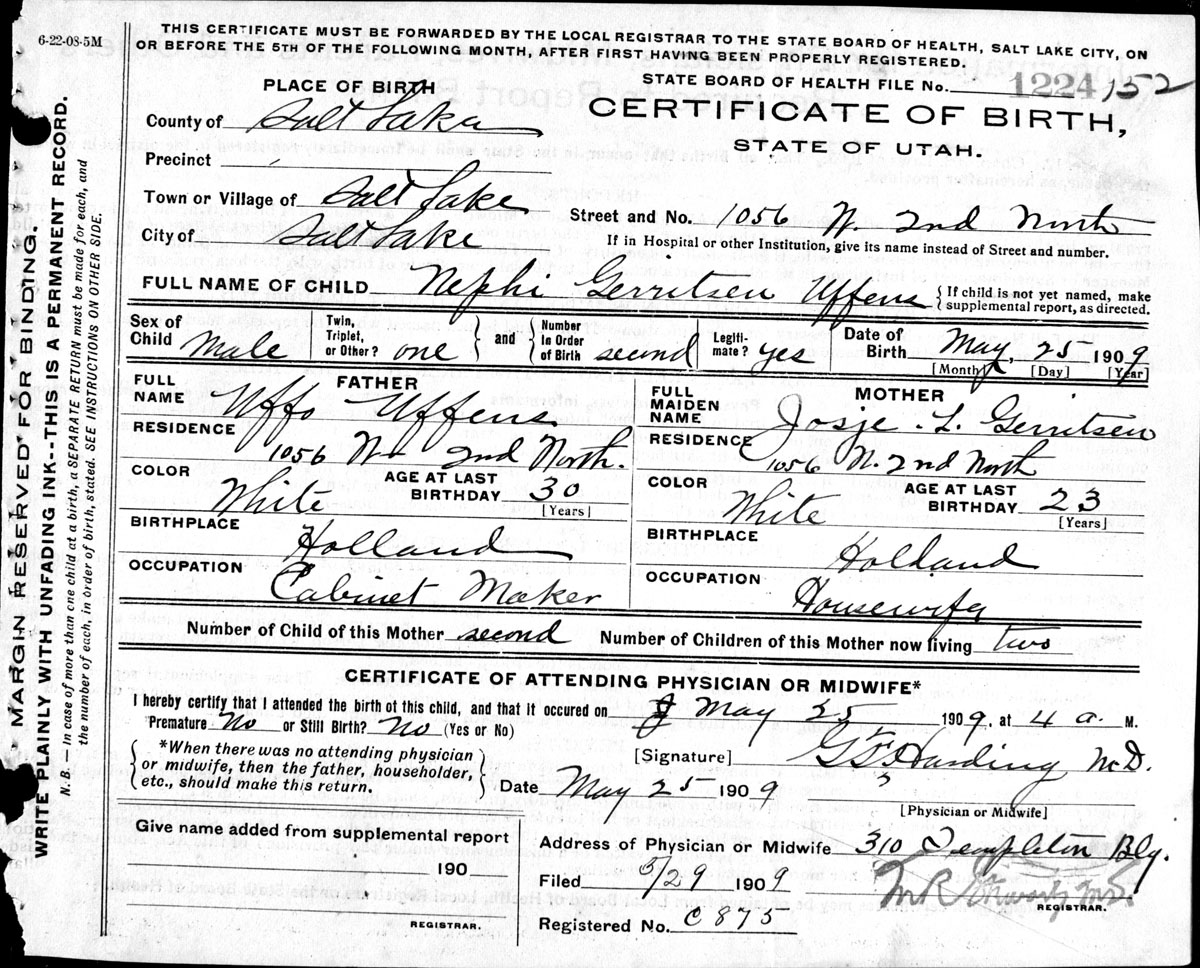 6-22-08-5M
THIS CERTIFICATE MUST BE FORWARDED BY THE LOCAL REGISTRAR TO THE STATE BOARD OF HEALTH, SALT LAKE CITY, ON
OR BEFORE THE 5TH OF THE FOLLOWING MONTH, AFTER FIRST HAVING BEEN PROPERLY REGISTERED.
STATE BOARD OF HEALTH FILE No. 1224 152
PLACE OF BIRTH
CERTIFICATE OF BIRTH,
STATE OF UTAH.
County of Salt Lake
Precinct
Town or Village of Salt Lake
Street and No. 1056 W. 2nd North
City of Salt Lake
If in Hospital or other Institution, give its name instead of Street and number.
FULL NAME OF CHILD Nephi Gerritsen Uffens {If child is not yet named, make supplemental report, as directed.
Sex of Child Male Twin, Triplet, or Other? one } and { Number In Order of Birth second Legitimate? yes Date of Birth May, 25 1909
[Month] [Day] [Year]
FATHER
FULL NAME Uffo Uffens
RESIDENCE 1056 W. 2nd North.
COLOR White AGE AT LAST BIRTHDAY 30
[Years]
BIRTHPLACE Holland
OCCUPATION Cabinet Maker
MOTHER
FULL MAIDEN NAME Josje L. Gerritsen
RESIDENCE 1056 N. 2nd North
COLOR White AGE AT LAST BIRTHDAY 23
[Years]
BIRTHPLACE Holland
OCCUPATION Housewife
Number of Child of this Mother second Number of Children of this Mother now living two
CERTIFICATE OF ATTENDING PHYSICIAN OR MIDWIFE*
I hereby certify that I attended the birth of this child, and that it occured on May 25 1909, at 4 a. M.
Premature No or Still Birth? No (Yes or No)
*When there was no attending physician
or midwife, then the father, householder,
etc., should make this return.
[Signature] G F Harding M.D.
Date May 25 1909
[Physician or Midwife]
Give name added from supplemental report
190
REGISTRAR.
Address of Physician or Midwife 310 Templeton Blg.
Filed 5/29 1909
REGISTRAR.
Registered No. C 875
MARGIN RESERVED FOR BINDING.
WRITE PLAINLY WITH UNFADING INK--THIS IS A PERMANENT RECORD.
N.B.—In case of more than one child at a birth, a SEPARATE RETURN must be made for each, and
the number of each, in order of birth, stated. SEE INSTRUCTIONS ON OTHER SIDE.